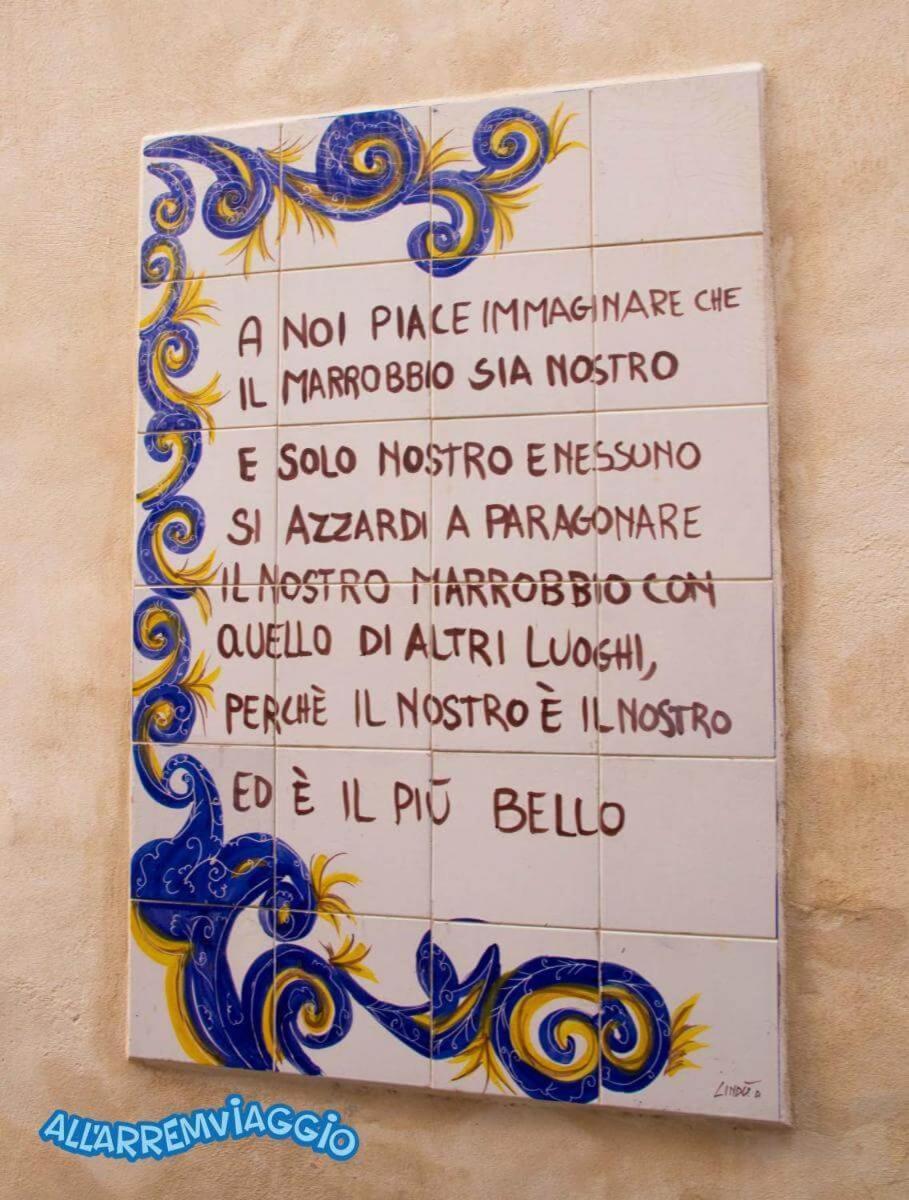 A NOI PIACE IMMAGINARE CHE
IL MARROBBIO SIA NOSTRO
E SOLO NOSTRO E NESSUNO
SI AZZARDI A PARAGONARE
IL NOSTRO MARROBBIO CON
QUELLO DI ALTRI LUOGHI,
PERCHÈ IL NOSTRO È IL NOSTRO
ED È IL PIÙ BELLO
ALL'ARREMVIAGGIO